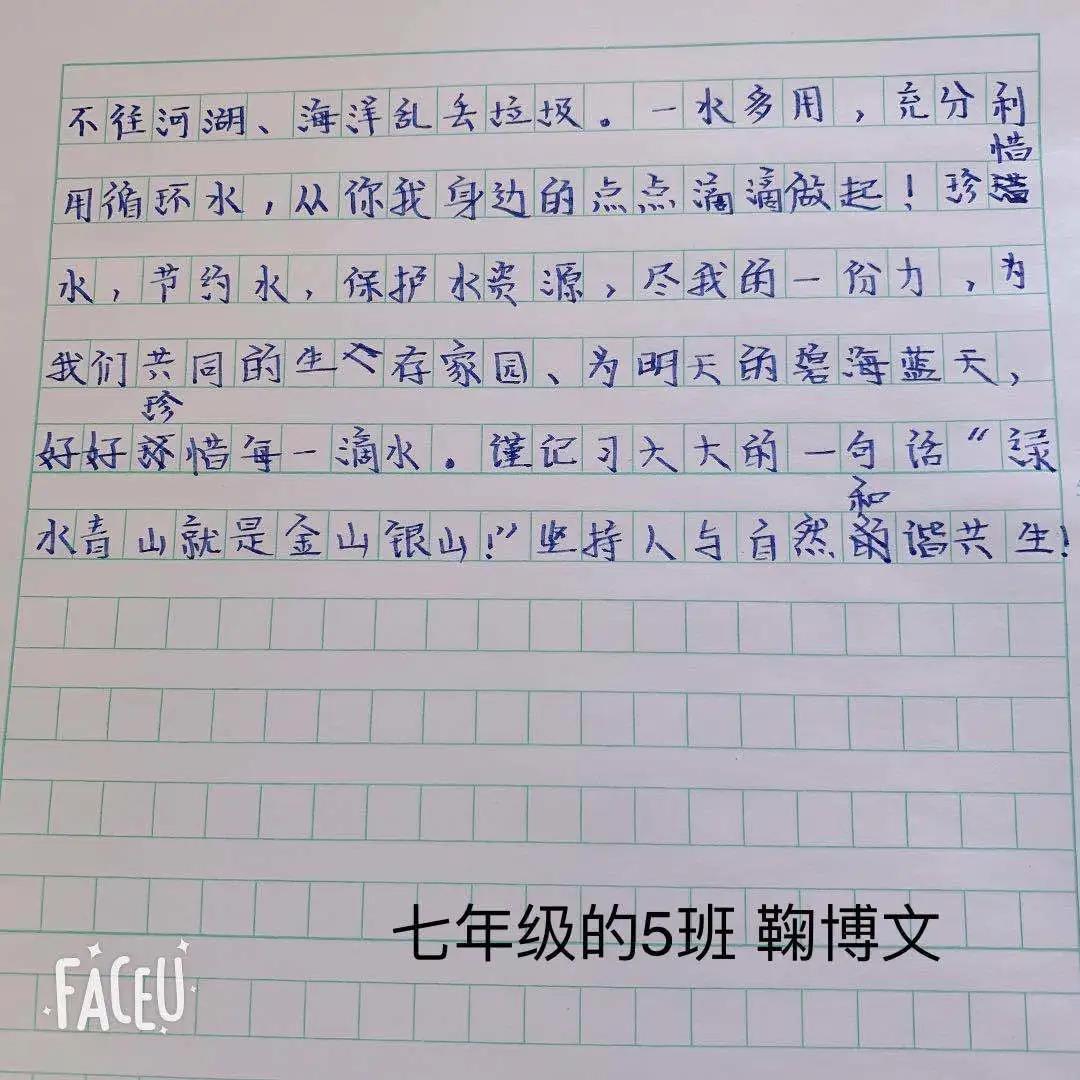 不往河湖、海洋乱丢垃圾。一水多用，充分利
用循环水，从你我身边的点点滴滴做起！珍惜
水，节约水，保护水资源，尽我的一份力，为
我们共同的生存家园、为明天的碧海蓝天，
好好珍惜每一滴水。谨记习大大的一句话“绿
水青山就是金山银山！”坚持人与自然和谐共生！
七年级的5班 鞠博文
FACEU